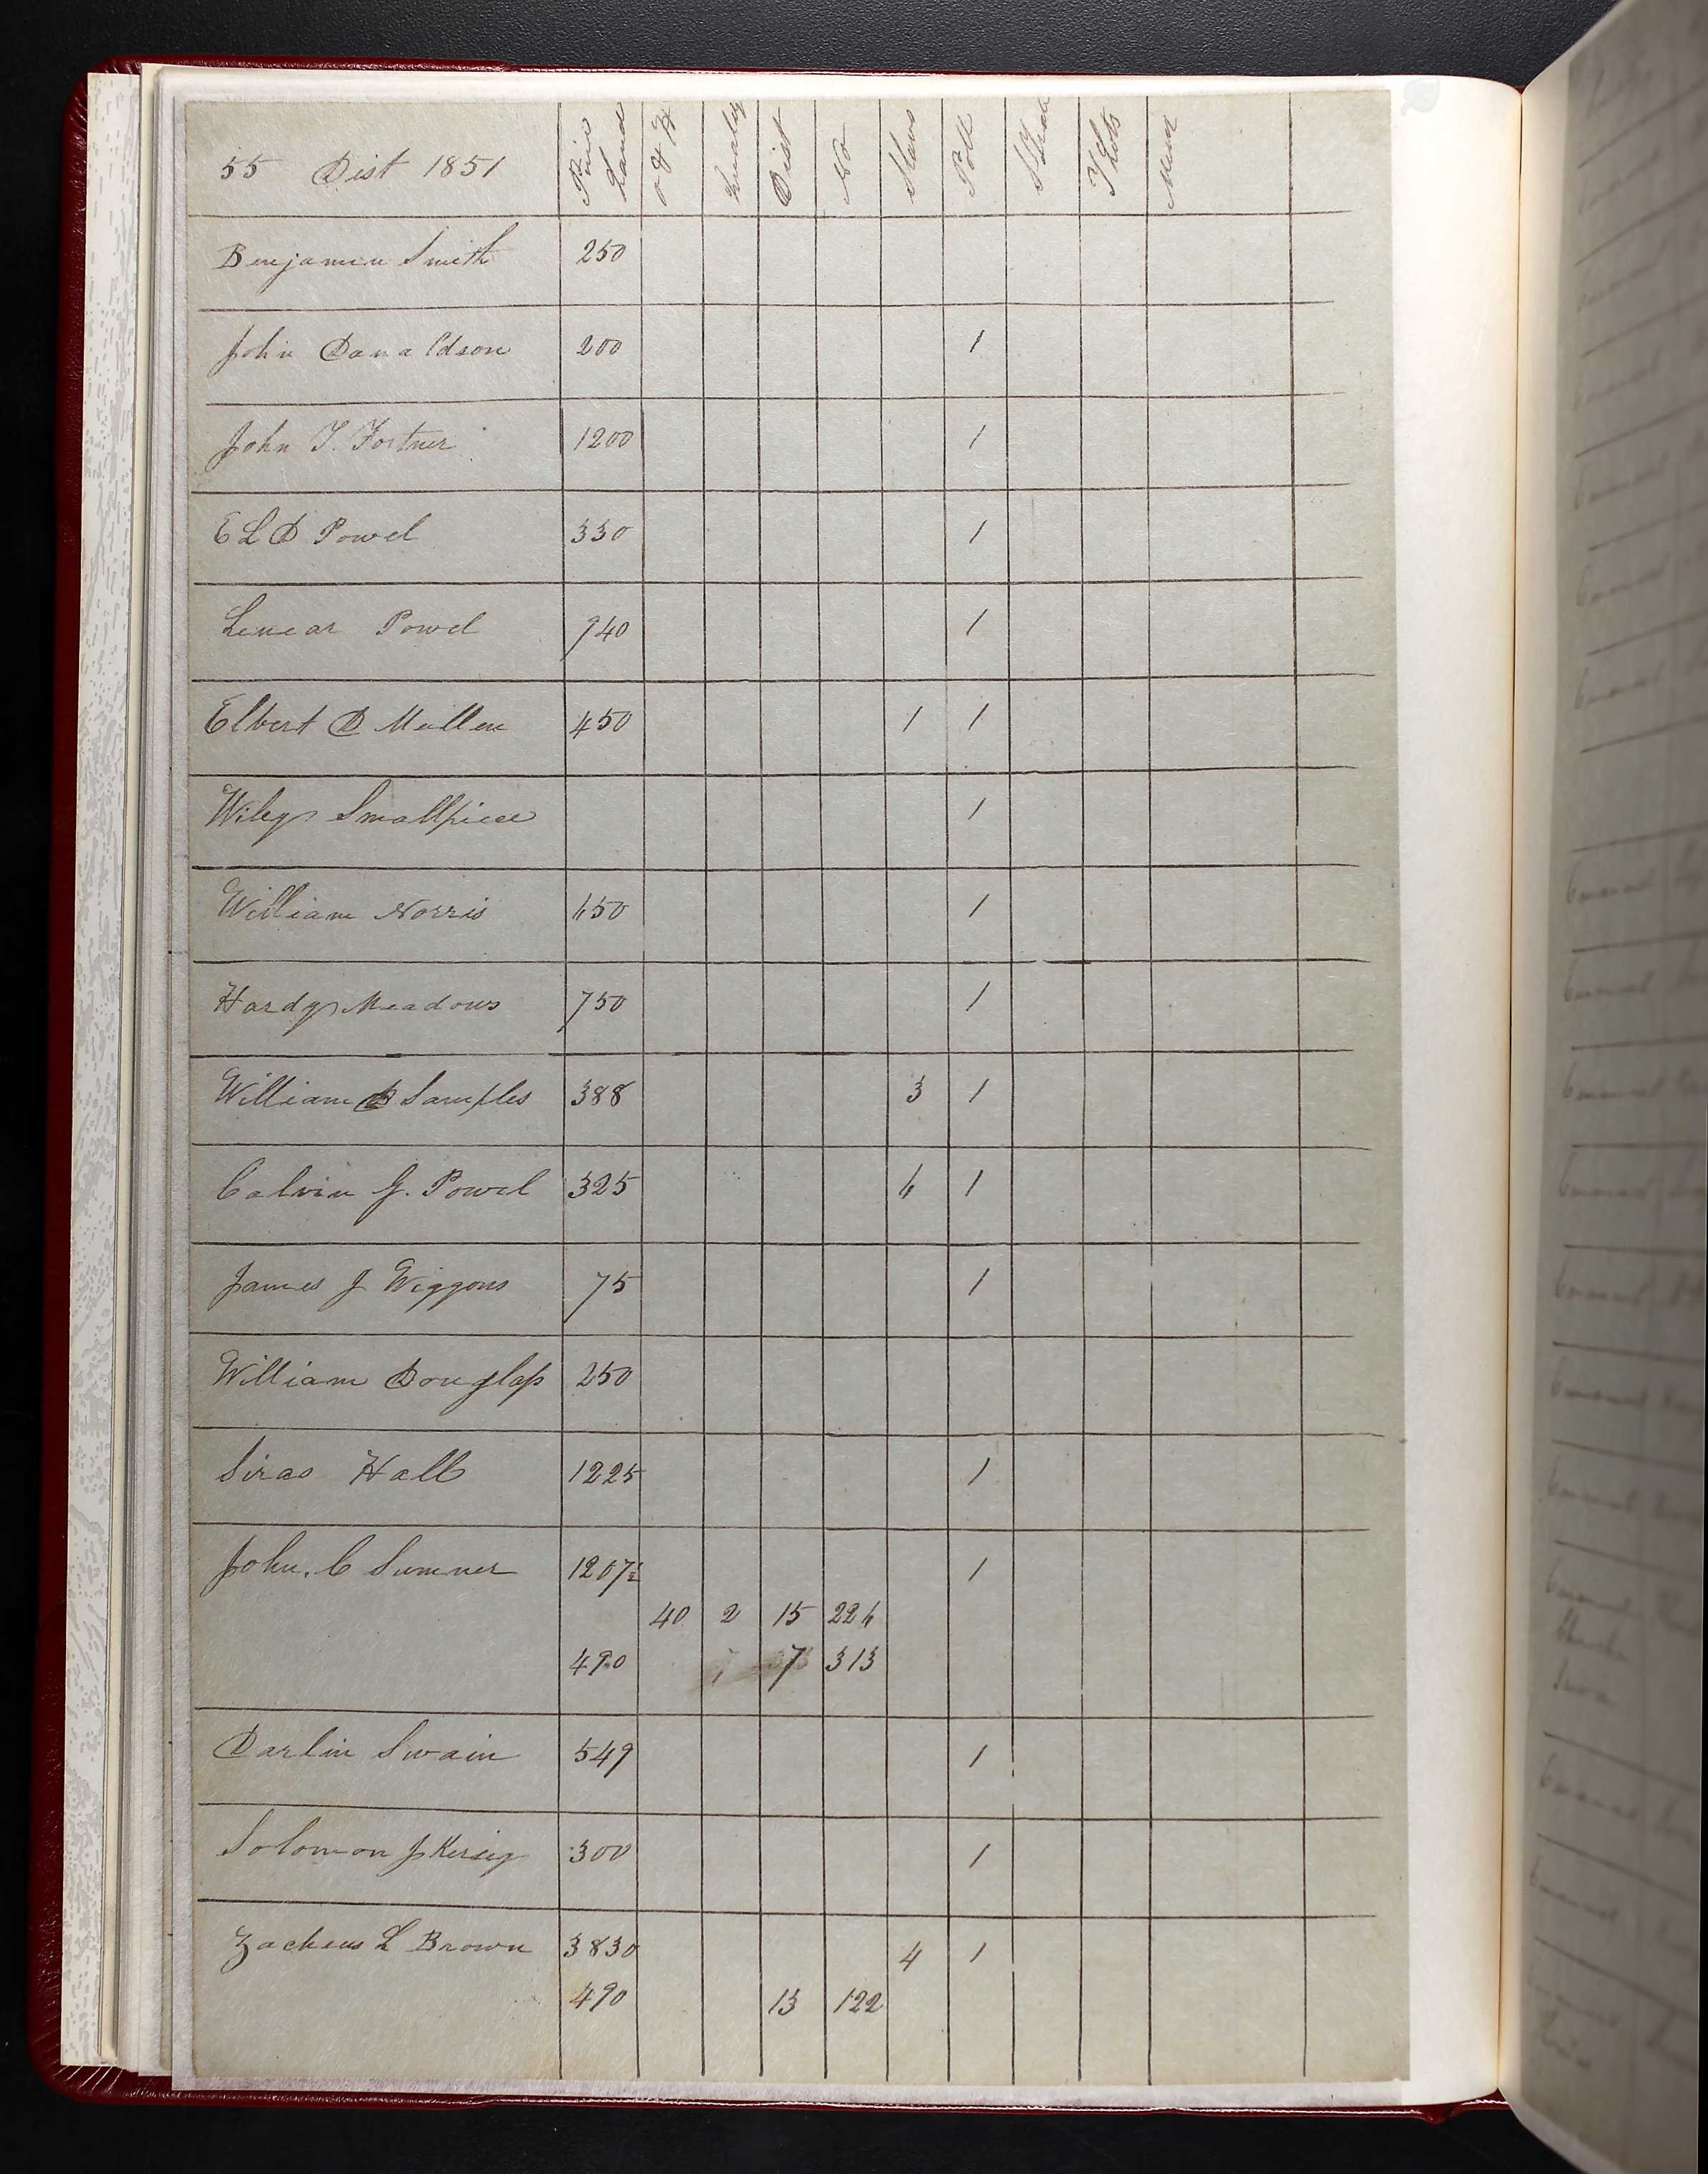 55 Dist 1851 Pine Land O & H Quality Dist No Slaves Poll S Trade T Lots Merch
Benjamin Smith 250
John Danaldson 200 1
John T. Fortner 1200 1
E L D Powel 330 1
Lenear Powel 940 1
Elbert D Mullen 450 1 1
Wiley Smallpiece 1
William Norris 450 1
Hardy Meadows 750 1
William D Samples 388 3 1
Calvin G. Powel 325 4 1
James J Wiggons 75 1
William Douglass 250
Siras Hall 1225 1
John. C Sumner 1207½ 1
40 2 15 224
490 7 313
Darlin Swain 549 1
Solomon J Kersey 300 1
Zacheus L Brown 3830 4 1
490 13 122